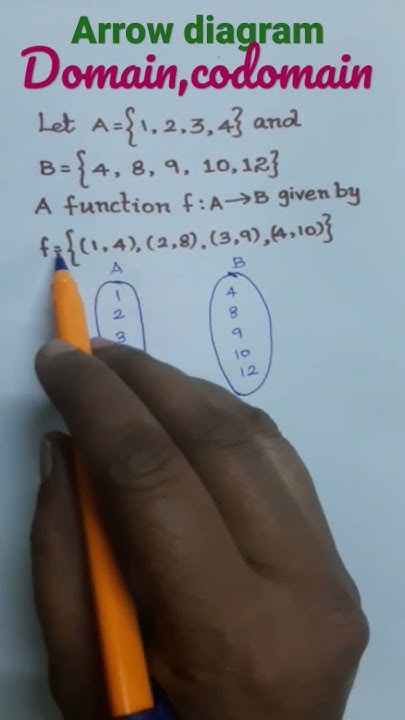 Arrow diagram
Domain,codomain
Let A={1,2,3,4} and
B={4, 8, 9, 10,12}
A function f:A→B given by
f={(1,4),(2,8),(3,9),(4,10)}
A B
1 4
2 8
3 9
10
12